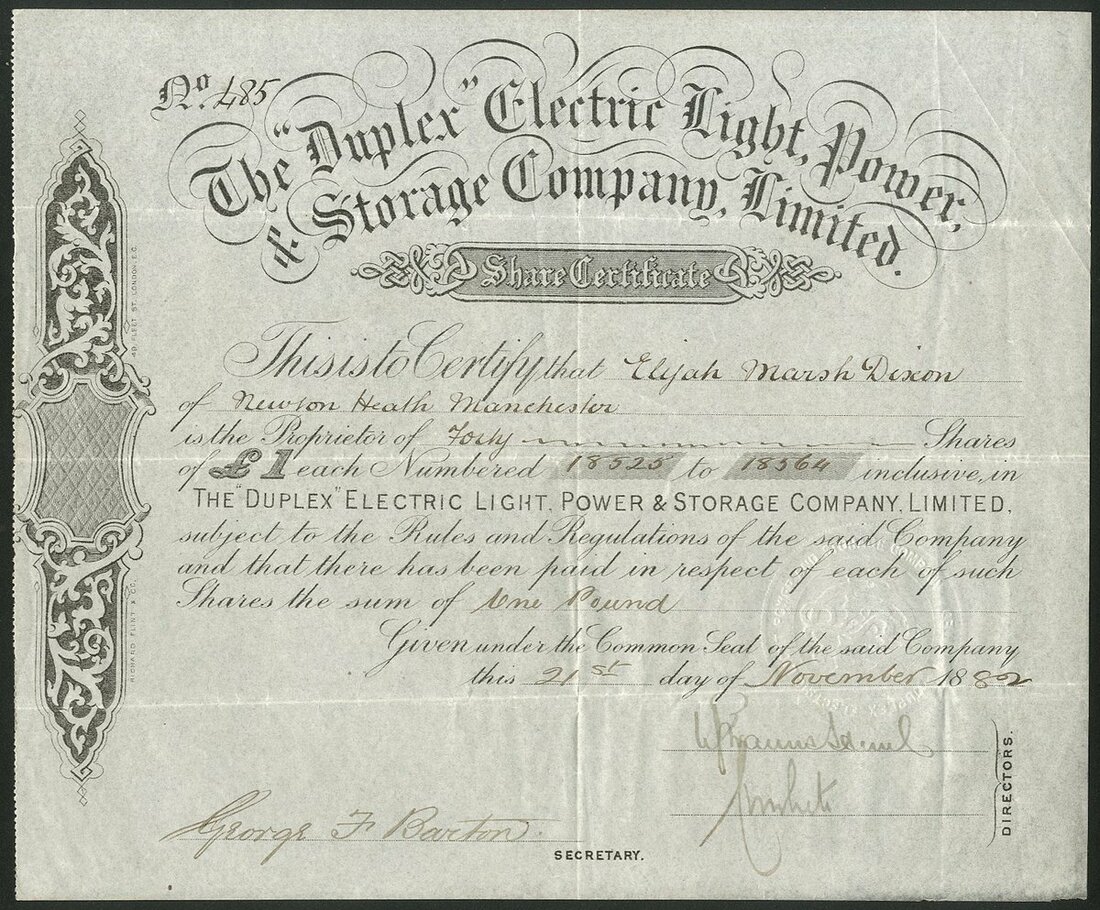 No. 485
The "Duplex" Electric Light, Power,
& Storage Company, Limited.
Share Certificate
This is to Certify that Elijah Marsh Dixon
of Newton Heath Manchester
is the Proprietor of Forty Shares
of £1 each Numbered 18525 to 18564 inclusive, in
THE "DUPLEX" ELECTRIC LIGHT, POWER & STORAGE COMPANY, LIMITED,
subject to the Rules and Regulations of the said Company
and that there has been paid in respect of each of such
Shares the sum of One Pound
Given under the Common Seal of the said Company
this 21st day of November 1882
DIRECTORS.
George F Barton.
SECRETARY.
RICHARD FLINT & CO.
49, FLEET ST. LONDON, E.C.